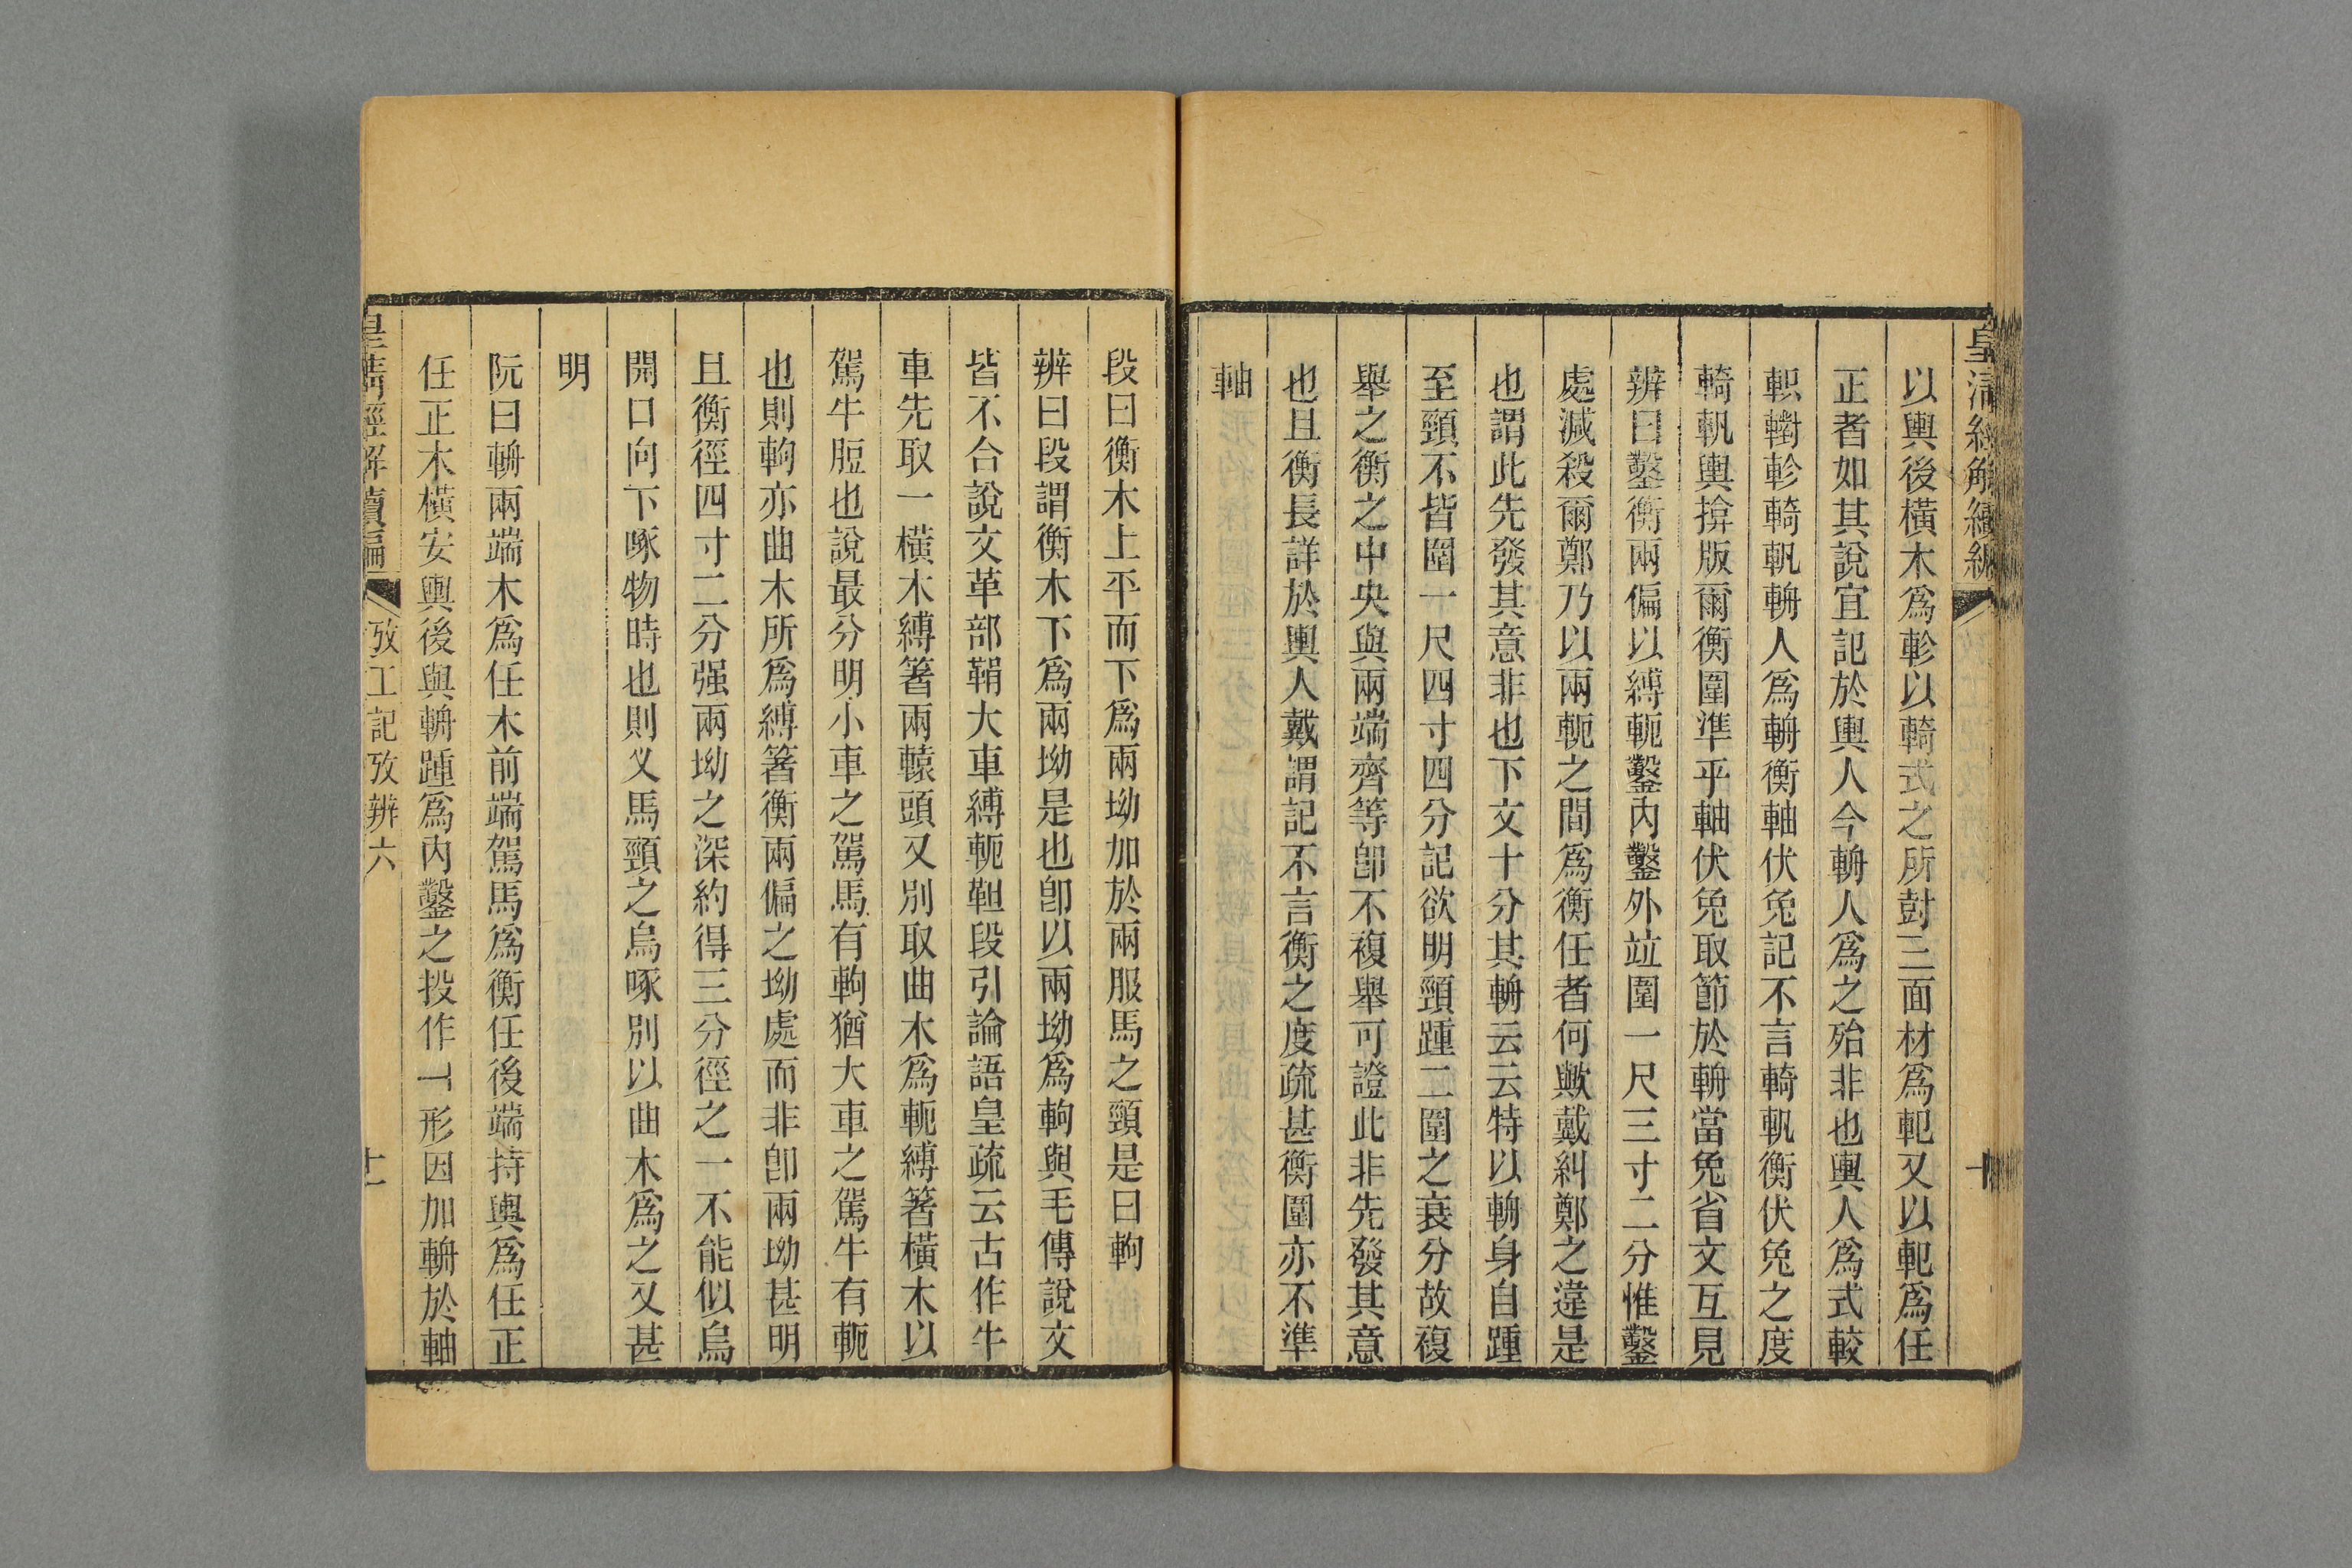 皇清經解續編
十
以輿後橫木爲軫以輢式之所尌三面材爲軓又以軓爲任
正者如其說宜記於輿人今輈人爲之殆非也輿人爲式較
軹轛軫輢軓輈人爲輈衡軸伏兔記不言輢軓衡伏兔之度
輢軓輿揜版爾衡圍準乎軸伏兔取節於輈當兔省文互見
辨曰鑿衡兩偏以縛軛鑿內鑿外竝圍一尺三寸二分惟鑿
處減殺爾鄭乃以兩軛之間爲衡任者何歟戴糾鄭之違是
也謂此先發其意非也下文十分其輈云云特以輈身自踵
至頸不皆圍一尺四寸四分記欲明頸踵二圍之衰分故複
舉之衡之中央與兩端齊等卽不複舉可證此非先發其意
也且衡長詳於輿人戴謂記不言衡之度疏甚衡圍亦不準
軸
段曰衡木上平而下爲兩坳加於兩服馬之頸是曰軥
辨曰段謂衡木下爲兩坳是也卽以兩坳爲軥與毛傳說文
皆不合說文革部鞙大車縛軛靼段引論語皇疏云古作牛
車先取一橫木縛箸兩轅頭又別取曲木爲軛縛箸橫木以
駕牛脰也說最分明小車之駕馬有軥猶大車之駕牛有軛
也則軥亦曲木所爲縛箸衡兩偏之坳處而非卽兩坳甚明
且衡徑四寸二分强兩坳之深約得三分徑之一不能似烏
開口向下啄物時也則叉馬頸之烏啄別以曲木爲之又甚
明
阮曰輈兩端木爲任木前端駕馬爲衡任後端持輿爲任正
任正木橫安輿後與輈踵爲內鑿之投作形因加輈於軸
皇淸經解續編
攷工記攷辨六
十一